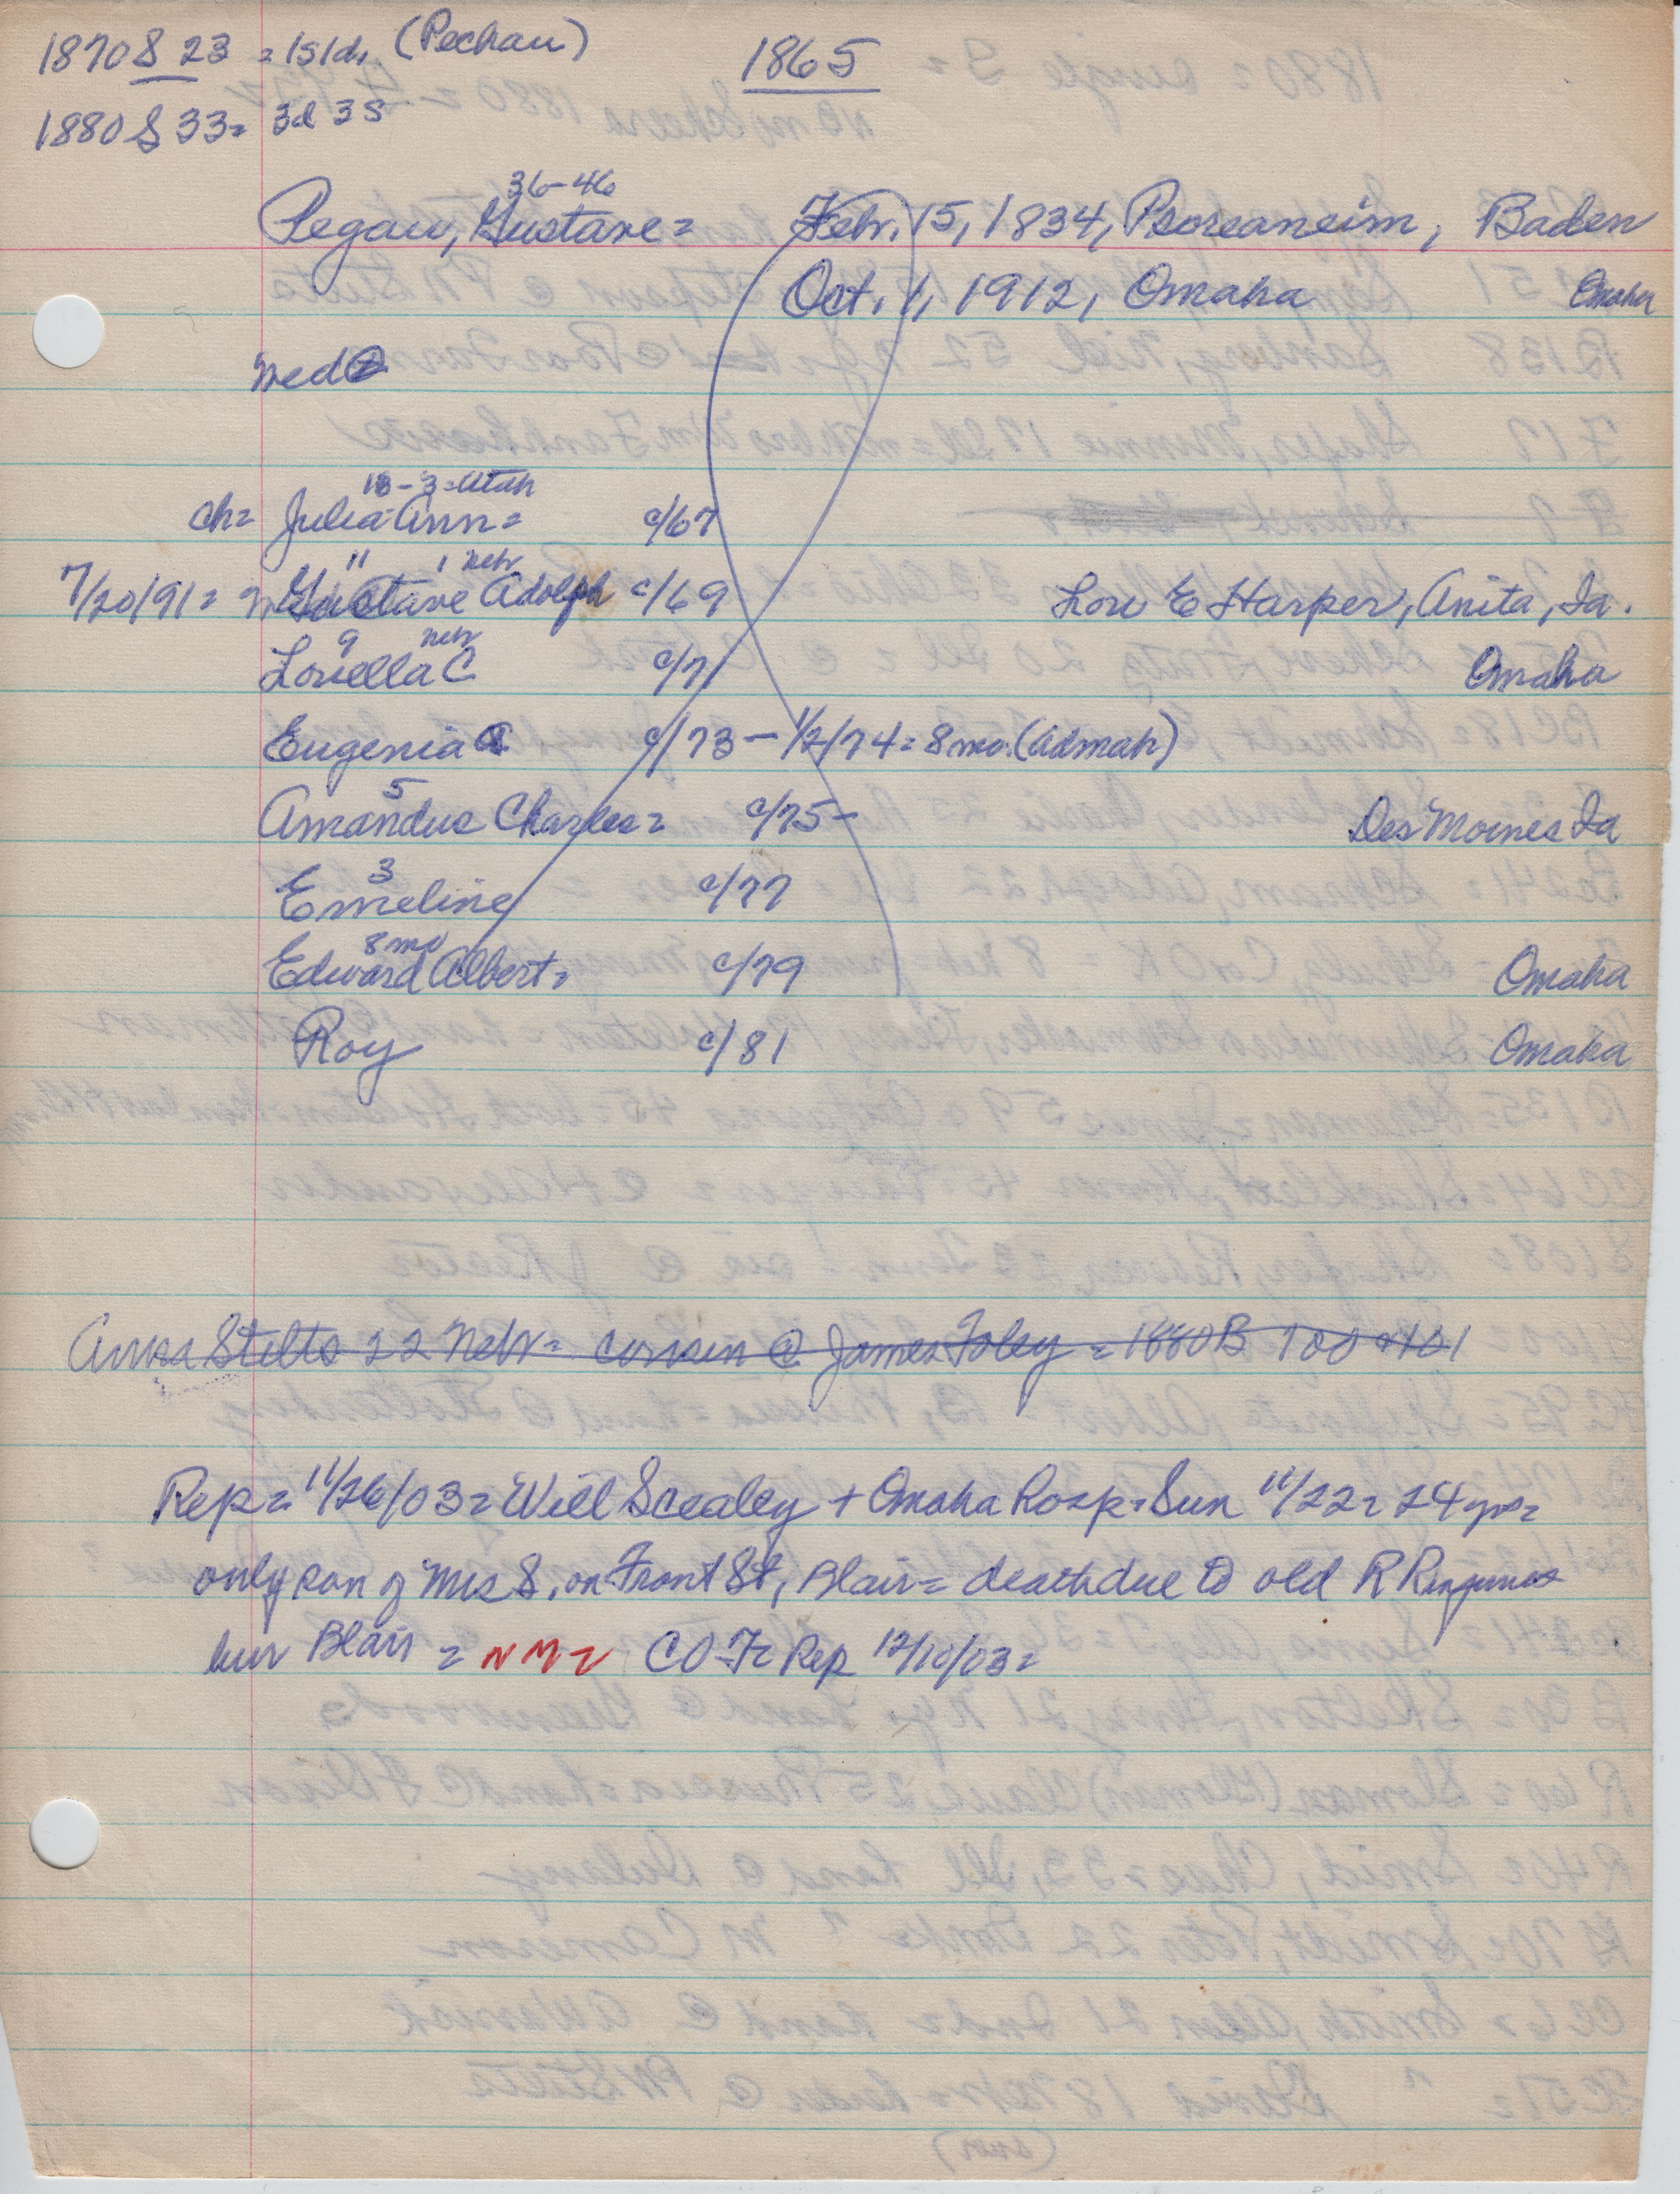 1870 S 23 = 1s 1d. (Pechau)
1865
1880 S 33 = 3d 3s
36-46
Pegau, Gustave = Febr. 15, 1834, Psoreaneim, Baden
Oct. 1, 1912, Omaha Omaha
med
18 - 3 = Utah
ch = Julia Ann = c/67
11 1 Nebr
7/20/91 = Gustave Adolph c/69 Lou E Harper, Anita, Ia.
9 Nebr
Louella C c/71 Omaha
Eugenia c/73 - 1/2/74 = 8 mo. (Admah)
5
Amandus Charles = c/75 - Des Moines Ia
3
Emeline c/77
8 mo
Edward Albert = c/79 Omaha
Roy c/81 Omaha
Anna Stelts 22 Nebr = cousin @ James Foley = 1880 B 100 + 101
Rep = 11/26/03 = Will Scealey + Omaha Hosp. Sun 11/22 = 24 yrs =
only son of Mrs S. on Front St, Blair = death due to old R R
bur Blair = NM = CO F = Rep 12/10/03 =